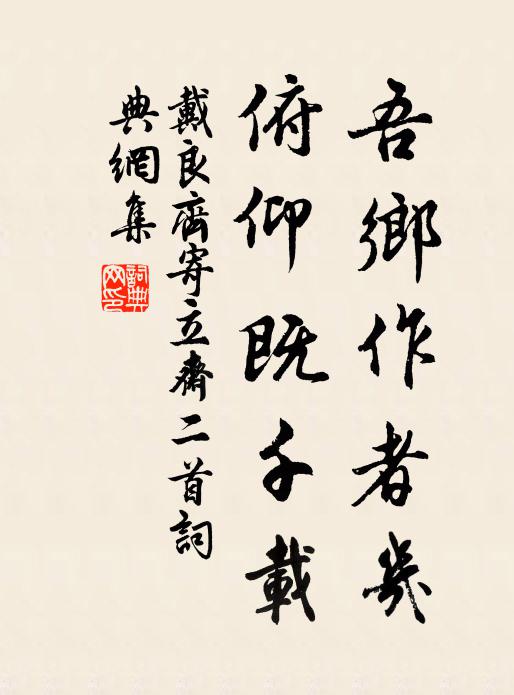 吾鄉作者幾
俯仰既千載
戴良齊寄立齋二首詞
典網集
詞典網印